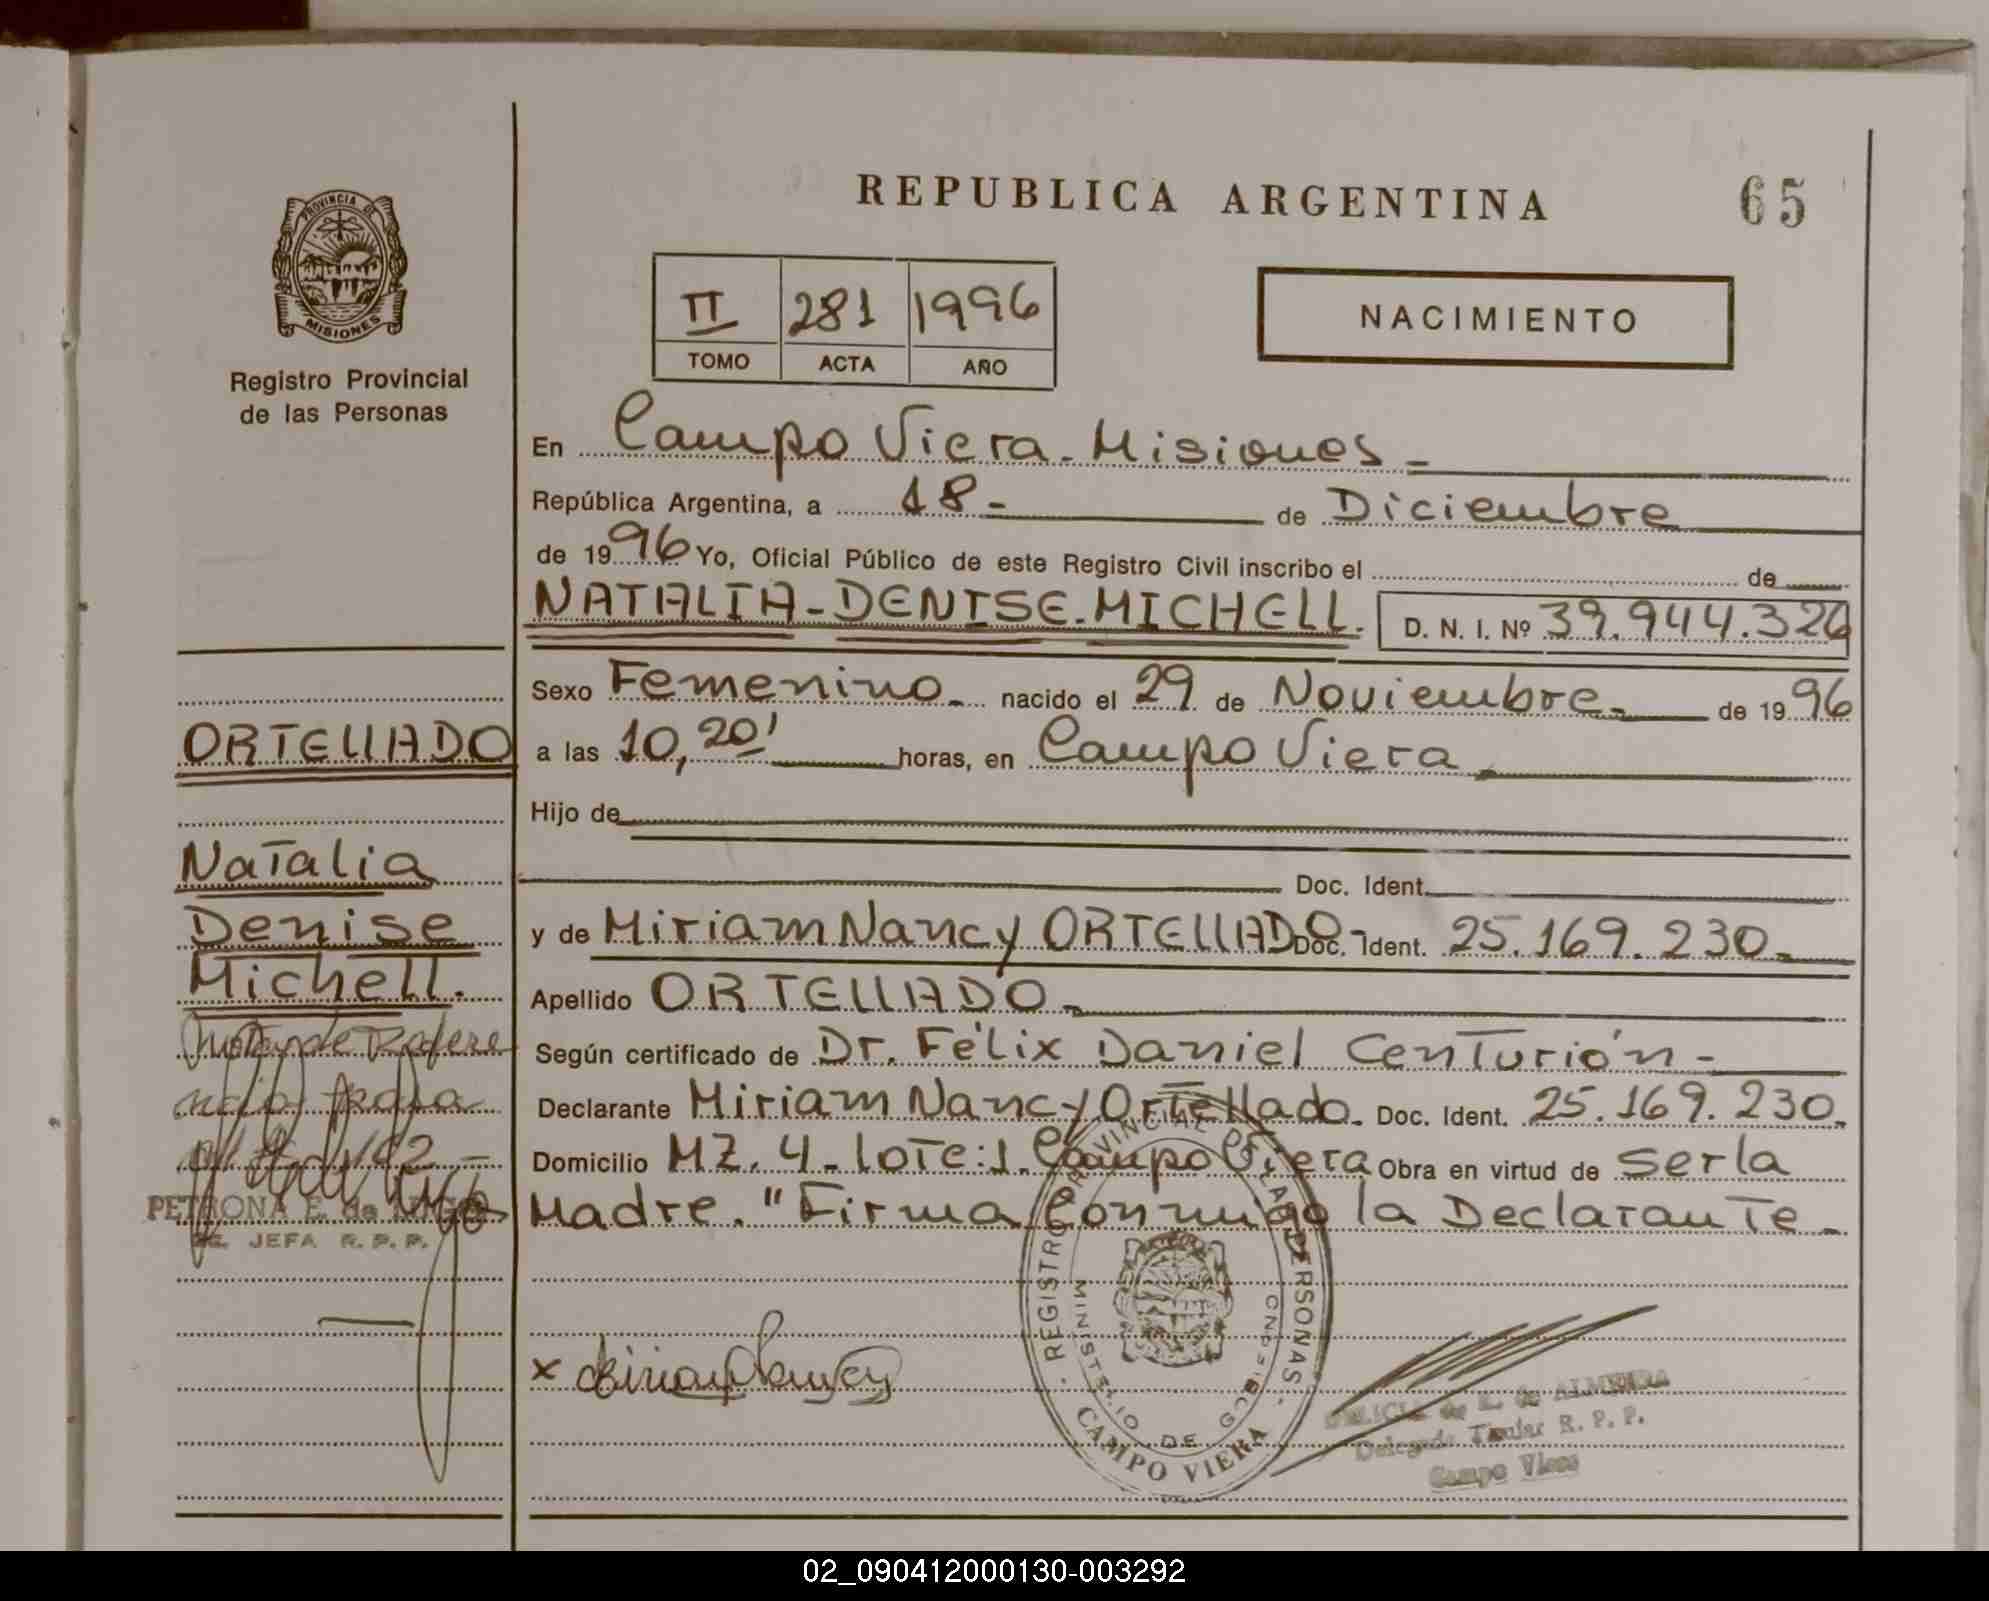 REPUBLICA ARGENTINA
65
PROVINCIA DE
MISIONES
Registro Provincial
de las Personas
II 281 1996
TOMO ACTA AÑO
NACIMIENTO
En Campo Viera - Misiones -
República Argentina, a 18 - de Diciembre
de 1996 Yo, Oficial Público de este Registro Civil inscribo el de
NATALIA - DENISE - MICHELL. D. N. I. Nº 39.944.326
Sexo Femenino - nacido el 29 de Noviembre - de 1996
a las 10,20' horas, en Campo Viera
Hijo de
Doc. Ident.
y de Miriam Nancy ORTELLADO - Doc. Ident. 25.169.230 -
Apellido ORTELLADO -
Según certificado de Dr. Félix Daniel Centurión -
Declarante Miriam Nancy Ortellado - Doc. Ident. 25.169.230.
Domicilio MZ. 4 - lote: 1. Campo Viera Obra en virtud de ser la
Madre. "Firma Conmigo la Declarante -
ORTELLADO
Natalia
Denise
Michell.
PETRONA E. de
JEFA R. P. P.
x Miriam Nancy
REGISTRO PROVINCIAL DE LAS PERSONAS
MINISTERIO DE
CAMPO VIERA
de ALMEIDA
Delegada Titular R. P. P.
Campo Viera
02_090412000130-003292